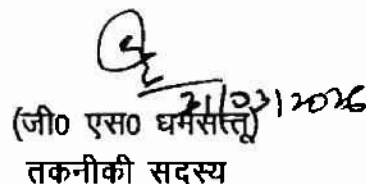 21/02/2026
(जी0 एस0 धर्मसत्तू)
तकनीकी सदस्य